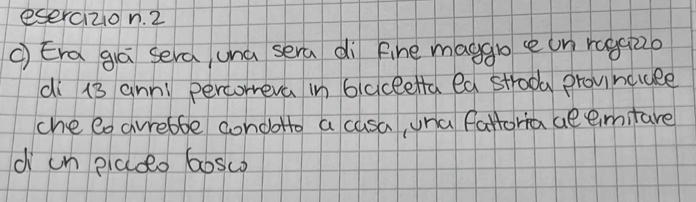 esercizio n.2
c) Era già sera, una sera di fine maggio e un ragazzo
di 13 anni percorreva in bicicletta la strada provinciale
che lo avrebbe condotto a casa, una fattoria al limitare
di un piccolo bosco